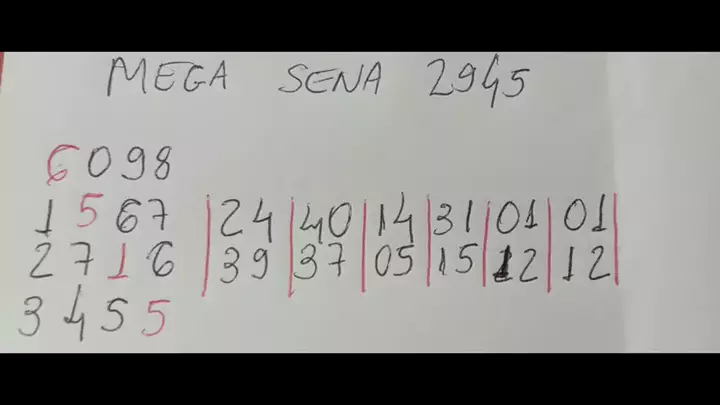 MEGA SENA 2945
6098
1567 | 24 | 40 | 14 | 31 | 01 | 01 |
2716 | 39 | 37 | 05 | 15 | 12 | 12 |
3455